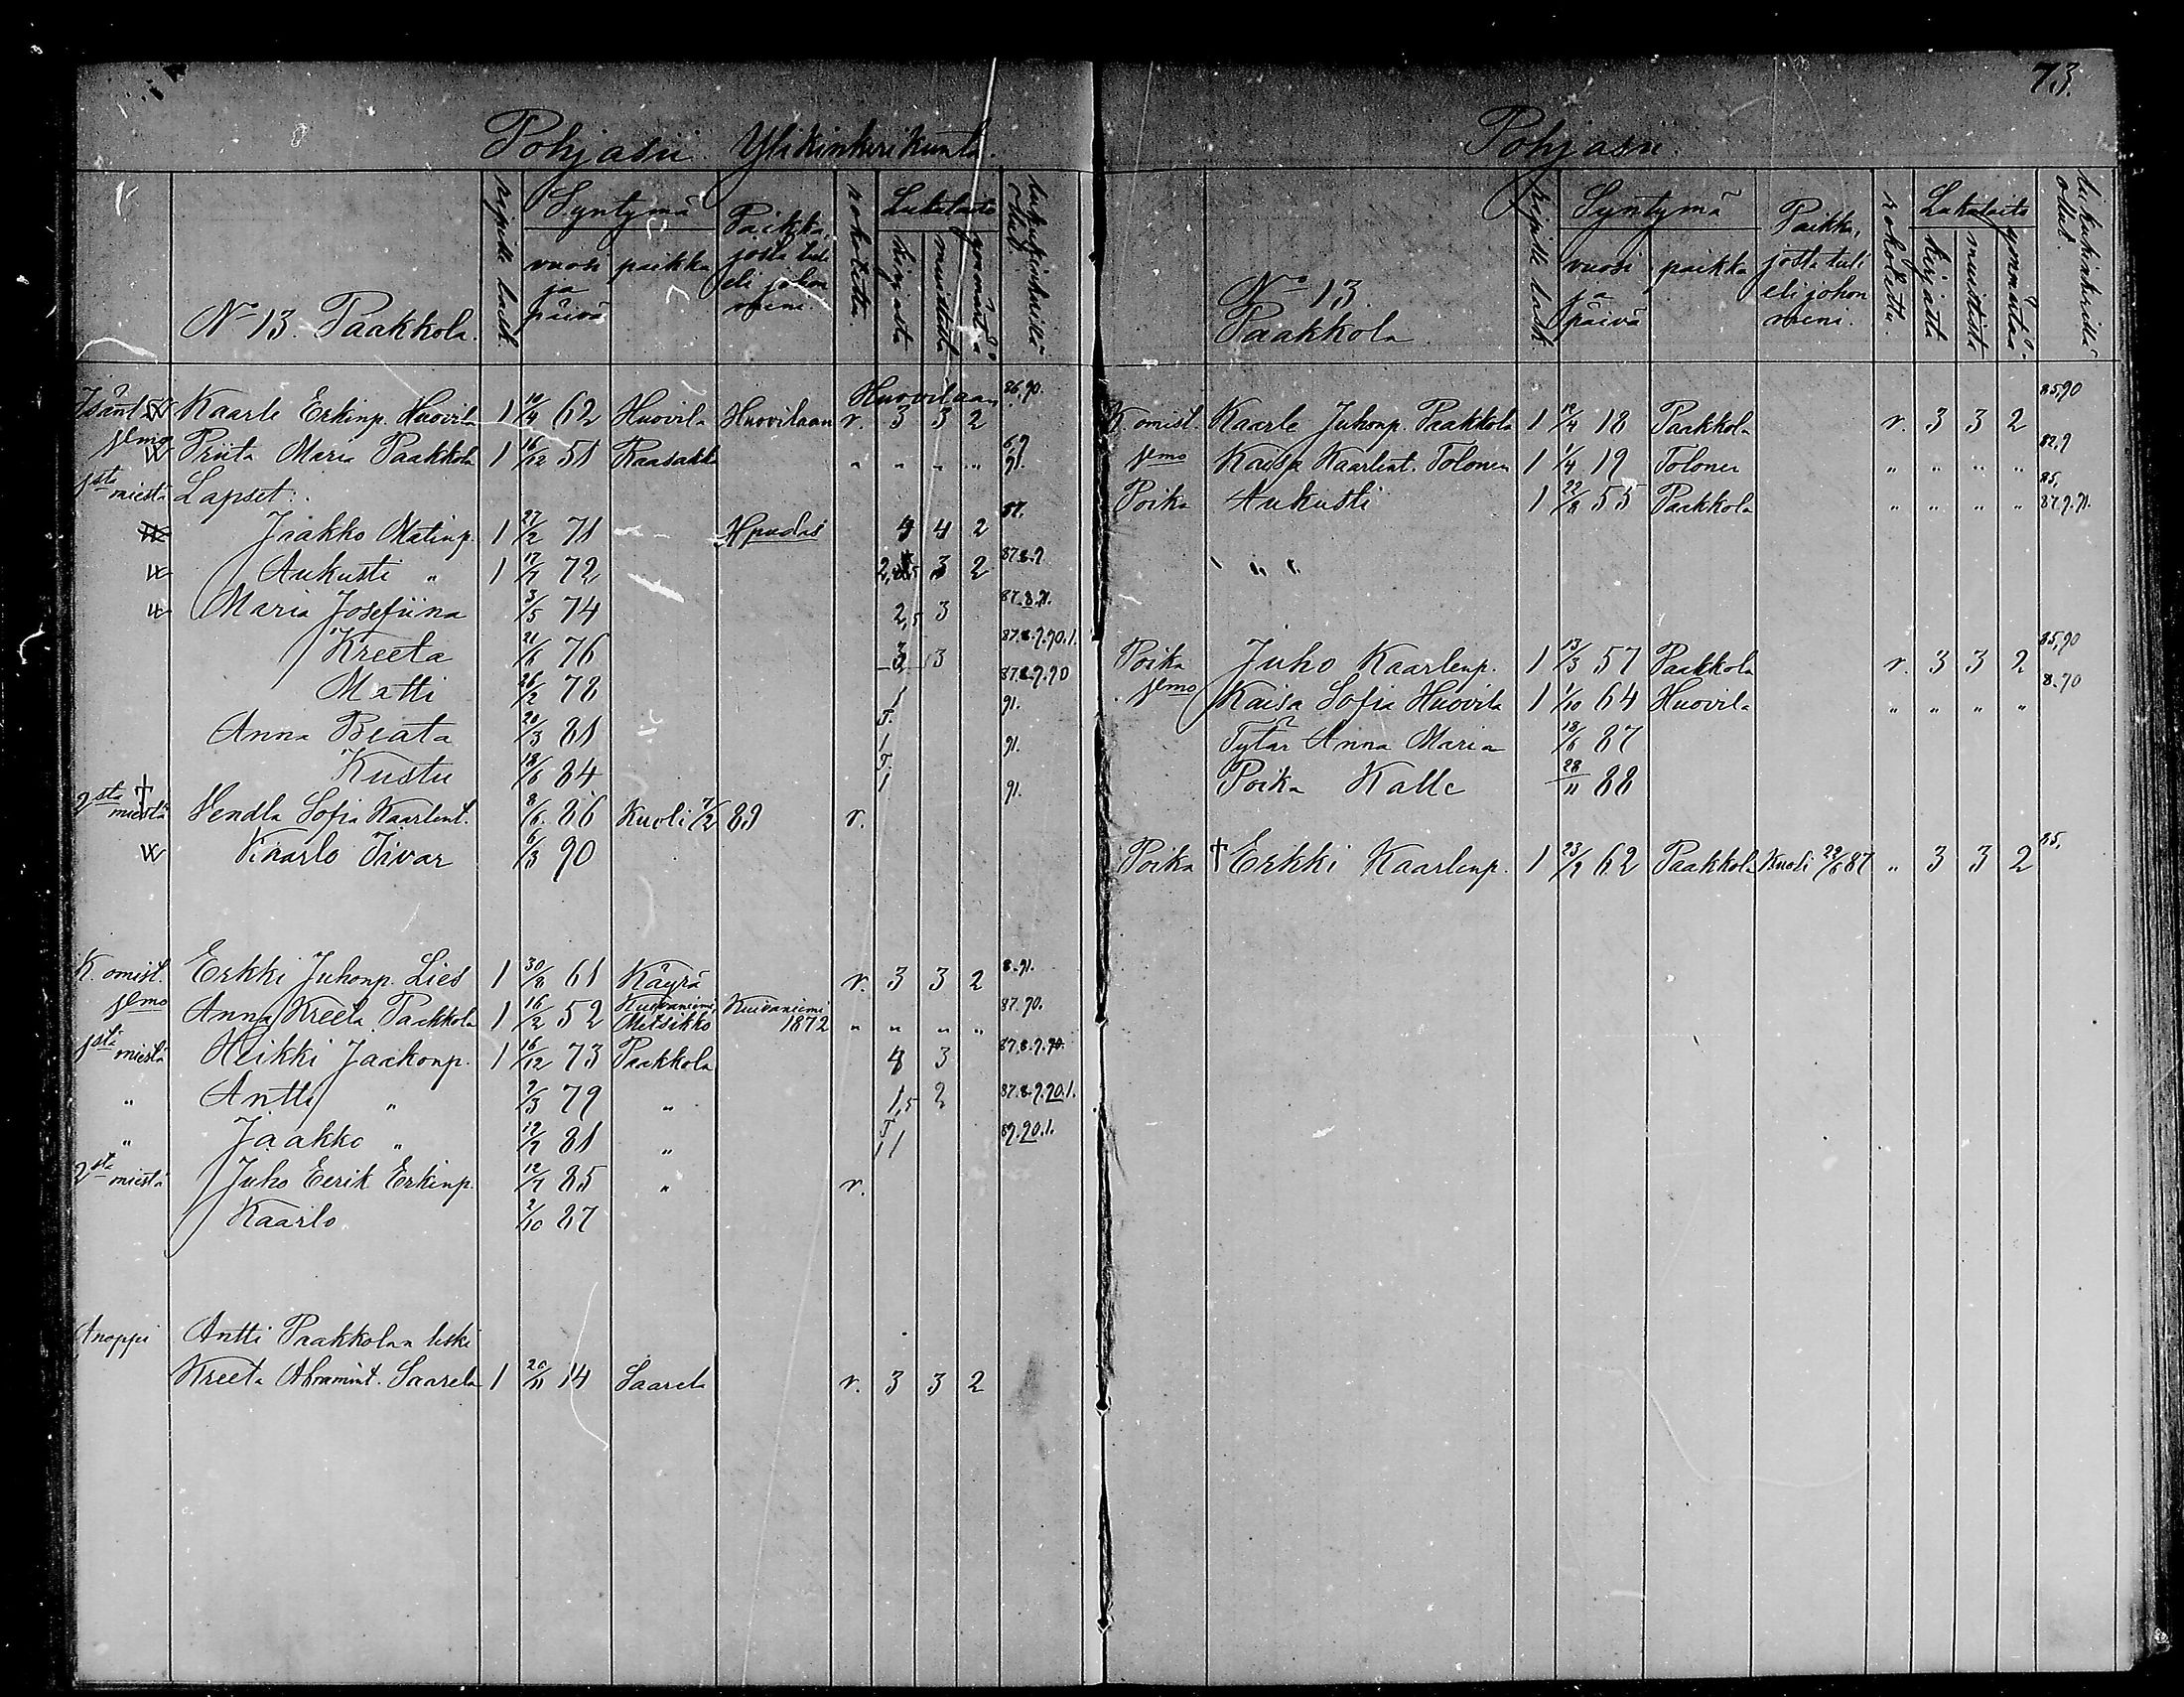 73.
Pohjasii. Ylikinkerikunta.
No 13. Paakkola.
ripille lask.
Syntymä
vuosi ja päivä
paikka
Paikka, josta tuli eli johon meni.
rokotettu.
Lukutaito
kirjasta
muistista
ymmärtää
lukukinkerillä ollut.
Huovilaan 86,90.
Isäntä Kaarle Erkinp. Huovila 1 10/4 62 Huovila Huovilaan r. 3 3 2
jemo Priita Maria Paakkola 1 16/12 51 Raasakka " " " " 91.
1sta miestä Lapset:
Jaakko Matinp. 1 27/2 71 Hpudas 4 4 2 87.
Aukusti " 1 17/7 72 3 2 87.8.9.
Maria Josefiina 3/5 74 2,5 3 87.8.91.
Kreeta 21/6 76 3 3 87.8.9.90.1.
Matti 26/2 78 1 87.8.9.90
Anna Beata 20/3 81 T. 1 91.
Kustu 18/6 84 T. 1 91.
2sta miestä † Hendla Sofia Kaarlent. 8/6 86 Kuoli 7/2 89 r. 91.
Kaarlo Iivar 6/3 90
K. omist. Erkki Juhonp. Lies 1 30/8 61 Käyrä r. 3 3 2 8.91.
jemo Anna Kreeta Paakkola 1 16/2 52 Kuivaniemi, Mitsikko Kuivaniemi 1872 " " " " 87.90.
1sta miestä Heikki Jaakonp. 1 16/12 73 Paakkola 4 3 87.8.9.90.
" Antti " 7/3 79 " 1,5 2 87.8.9.90.1.
" Jaakko " 12/7 81 " T 1 89.90.1.
2sta miestä Juho Eerik Erkinp. 12/7 85 " r.
Kaarlo 2/10 87
Anoppi Antti Paakkolan leski
Kreeta Abramint. Saarela 1 20/11 14 Saarela r. 3 3 2
Pohjasii.
No 13.
Paakkola
ripille lask.
Syntymä
vuosi ja päivä
paikka
Paikka, josta tuli eli johon meni.
rokotettu.
Lukutaito
kirjasta
muistista
ymmärtää
lukukinkerillä ollut.
K. omist. Kaarle Juhonp. Paakkola 1 12/4 18 Paakkola r. 3 3 2 85,90
jemo Kaisa Kaarlent. Tolonen 1 1/4 19 Tolonen " " " " 87.9
Poika Aukusti 1 22/8 55 Paakkola " " " " 85, 87.9.91.
" " "
Poika Juho Kaarlenp. 1 13/3 57 Paakkola r. 3 3 2 85,90
jemo Kaisa Sofia Huovila 1 1/10 64 Huovila " " " " 8.90
Tytär Anna Maria 18/6 87
Poika Kalle 28/11 88
Poika † Erkki Kaarlenp. 1 23/2 62 Paakkola Kuoli 22/6 87 " 3 3 2 85,